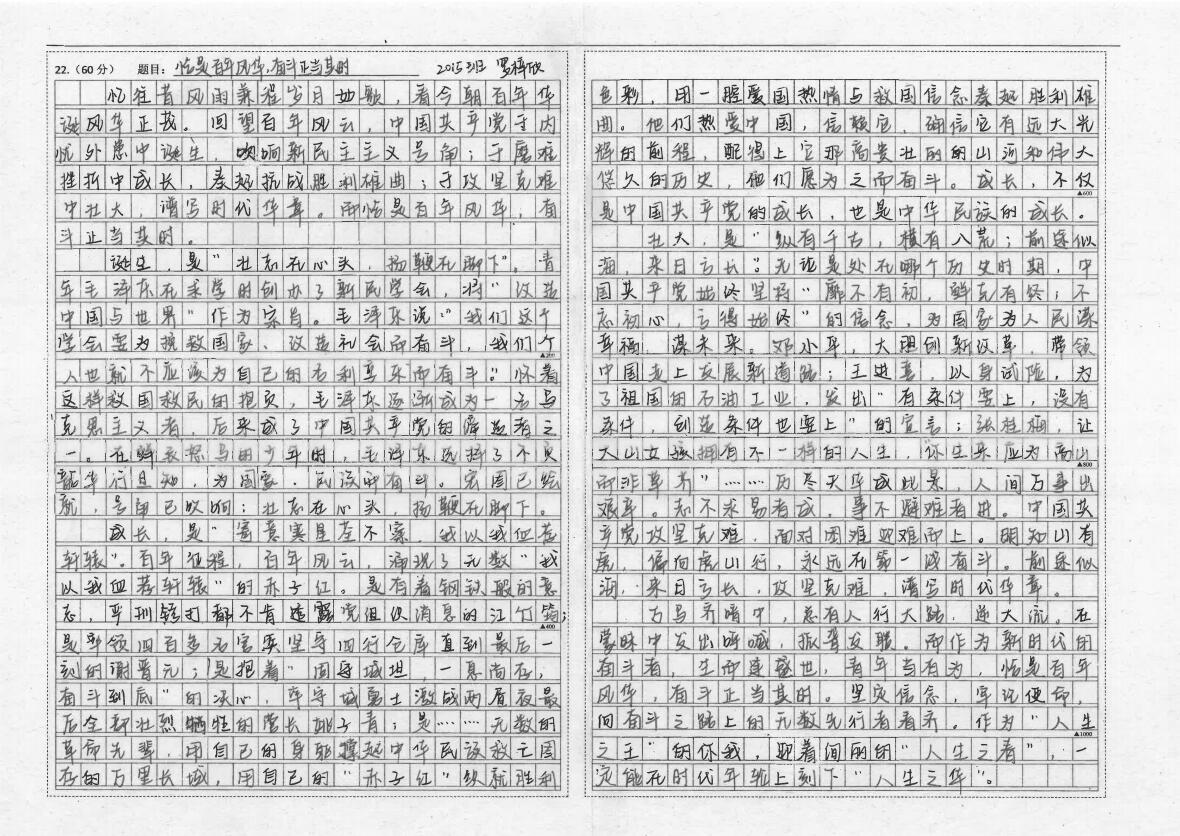 22.（60分） 题目：恰是百年风华，奋斗正当其时 2015班 罗梓欣
忆往昔风雨兼程岁月如歌，看今朝百年华
诞风华正茂。回望百年风云，中国共产党于内
忧外患中诞生，吹响新民主主义号角；于磨难
挫折中成长，奏起抗战胜利雄曲；于攻坚克难
中壮大，谱写时代华章。而恰是百年风华，奋
斗正当其时。
诞生，是“壮志在心头，扬鞭在脚下”。青
年毛泽东在求学时创办了新民学会，将“改造
中国与世界”作为宗旨。毛泽东说：“我们这个
学会要为拯救国家、改造社会而奋斗，我们个
▲200
人也就不应该为自己的名利享乐而奋斗。”怀着
这样救国救民的抱负，毛泽东逐渐成为一名马
克思主义者，后来成了中国共产党的缔造者之
一。在鲜衣怒马的少年时，毛泽东选择了不负
韶华行且知，为国家、民族中奋斗。宏图已绘
就，号角已吹响；壮志在心头，扬鞭在脚下。
成长，是“寄意寒星荃不察，我以我血荐
轩辕”。百年征程，百年风云，涌现了无数“我
以我血荐轩辕”的赤子红。是有着钢铁般的意
志，严刑铐打都不肯透露党组织消息的江竹筠；
▲400
是率领四百多名官兵坚守四行仓库直到最后一
刻的谢晋元；是抱着“固守城坦，一息尚存，
奋斗到底”的决心，率守城勇士激战两昼夜最
后全部壮烈牺牲的营长姚子青；是……无数的
革命先辈，用自己的身躯撑起中华民族救亡图
存的万里长城，用自己的“赤子红”织就胜利
色彩，用一腔爱国热情与救国信念奏起胜利雄
曲。他们热爱中国，信赖它，确信它有远大光
辉的前程，配得上它那高贵壮丽的山河和伟大
悠久的历史，他们愿为之而奋斗。成长，不仅
▲600
是中国共产党的成长，也是中华民族的成长。
壮大，是“纵有千古，横有八荒；前途似
海，来日方长”。无论是处在哪个历史时期，中
国共产党始终坚持“靡不有初，鲜克有终；不
忘初心，方得始终”的信念，为国家为人民谋
幸福，谋未来。邓小平，大胆创新改革，带领
中国走上发展新道路；王进喜，以身试险，为
了祖国的石油工业，发出“有条件要上，没有
条件，创造条件也要上”的宣言；张桂梅，让
大山女孩拥有不一样的人生，“你生来应为高山
▲800
而非草芥”……历尽天华成此景，人间万事出
艰辛。志不求易者成，事不避难者进。中国共
产党攻坚克难，面对困难迎难而上。明知山有
虎，偏向虎山行，永远在第一线奋斗。前途似
海，来日方长，攻坚克难，谱写时代华章。
万马齐喑中，总有人行大路，逆大流。在
蒙昧中发出呼喊，振聋发聩。而作为新时代的
奋斗者，生而逢盛世，青年当有为，恰是百年
风华，奋斗正当其时。坚定信念，牢记使命，
向奋斗之路上的无数先行者看齐。作为“人生
▲1000
之王”的你我，迎着间的“人生之春”，一
定能在时代年轮上刻下“人生之华”。